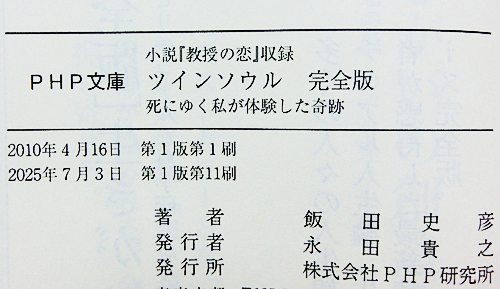 小説『教授の恋』収録
PHP文庫 ツインソウル 完全版
死にゆく私が体験した奇跡
2010年4月16日 第1版第1刷
2025年7月3日 第1版第11刷
著者 飯田史彦
発行者 永田貴之
発行所 株式会社PHP研究所